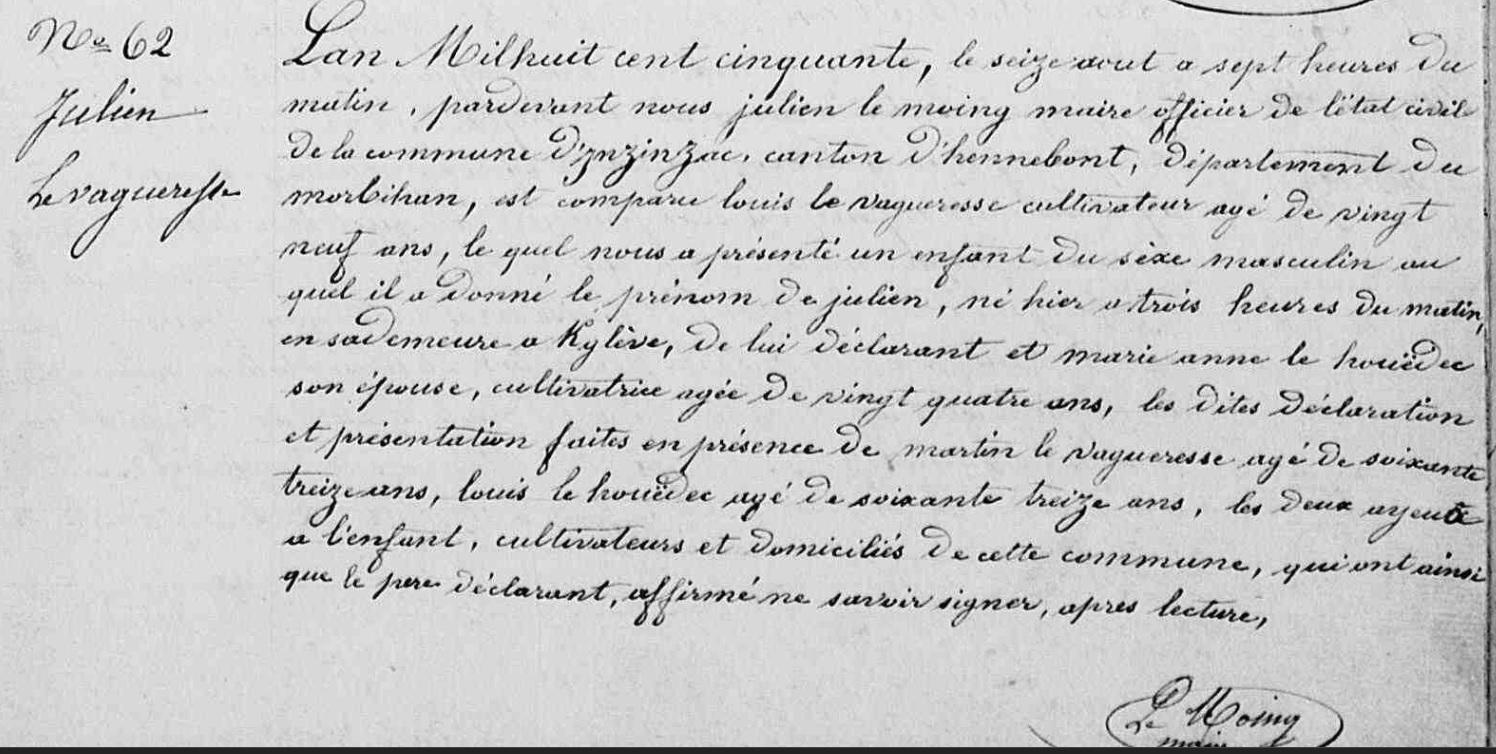 No 62
Julien
Le vagueresse
Lan Milhuit cent cinquante, le seize aout a sept heures du
matin, pardevant nous julien le moing maire officier de l'état civil
de la commune d'inzinzac, canton d'hennebont, département du
morbihan, est comparu louis le vagueresse cultivateur agé de vingt
neuf ans, le quel nous a présenté un enfant du sèxe masculin au
quel il a donné le prénom de julien, né hier a trois heures du matin,
en sa demeure a Kglève, de lui déclarant et marie anne le houëdec
son épouse, cultivatrice agée de vingt quatre ans, les dites déclaration
et présentation faites en présence de martin le vagueresse agé de soixante
treize ans, louis le houëdec agé de soixante treize ans, les deux ayeux
a l'enfant, cultivateurs et domiciliés de cette commune, qui ont ainsi
que le pere déclarant, affirmé ne savoir signer, apres lecture,
Le Moing
maire